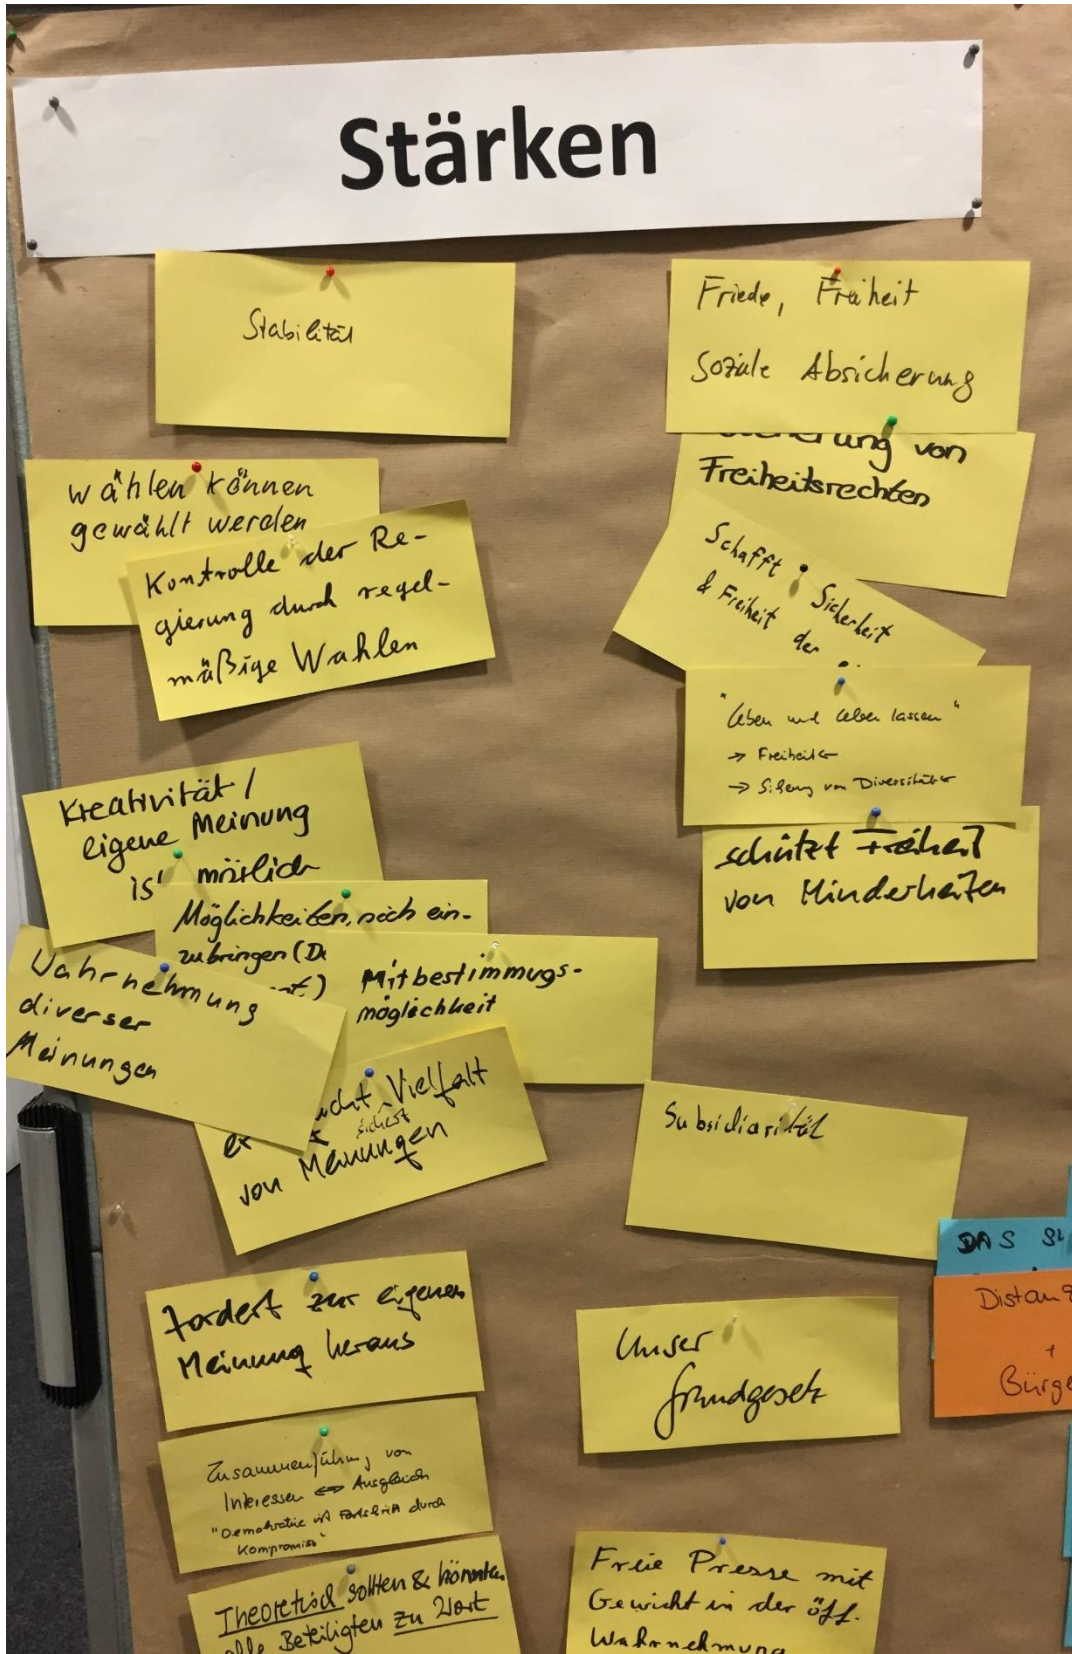 Stärken
Stabilität
wählen können
gewählt werden
Kontrolle der Re-
gierung durch regel-
mäßige Wahlen
Kreativität /
eigene Meinung
is' möglich
Möglichkeiten, sich ein-
zubringen (
Wahrnehmung
diverser
Meinungen
Mitbestimmugs-
möglichkeit
Vielfalt
sichert
von Meinungen
fordert zur eigenen
Meinung heraus
Zusammenführung von
Interessen ⇔ Ausgleich
"Demokratie ist Fortschritt durch
Kompromiss"
Theoretisch sollten & könnten
alle Beteiligten zu Wort
Friede, Freiheit
Soziale Absicherung
von
Freiheitsrechten
Schafft Sicherheit
& Freiheit der
"Leben und leben lassen"
→ Freiheit
→ von Diversität
schützt Freiheit
von Minderheiten
Subsidiarität
Unser
Grundgesetz
Freie Presse mit
Gewicht in der öff.
Wahrnehmung
DAS
+